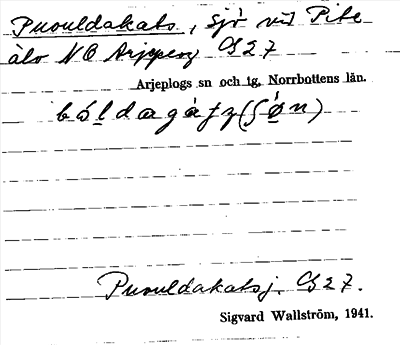 Puouldakats, sjö vid Pite
älv NO Arjeplog CS27
Arjeplogs sn och tg. Norrbottens län.
Puouldakatsj. CS27.
Sigvard Wallström, 1941.